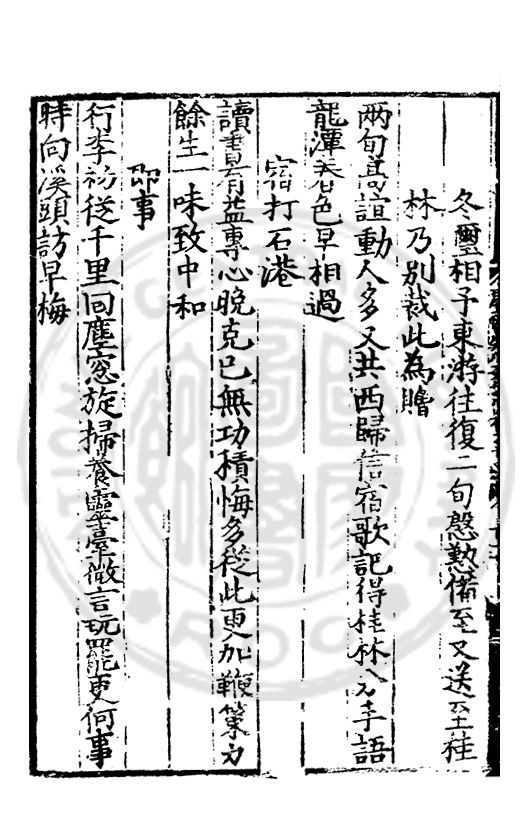 冬璽相予東游往復二旬慇懃備至又送至桂
林乃別裁此為贈
两旬高誼動人多又共西歸信宿歌記得桂林分手語
龍潭春色早相過
宿打石港
讀書有益專心晚克己無功積悔多從此更加鞭策力
餘生一味致中和
即事
行李初從千里回塵窓旋掃養靈臺微言玩罷更何事
時向溪頭訪早梅